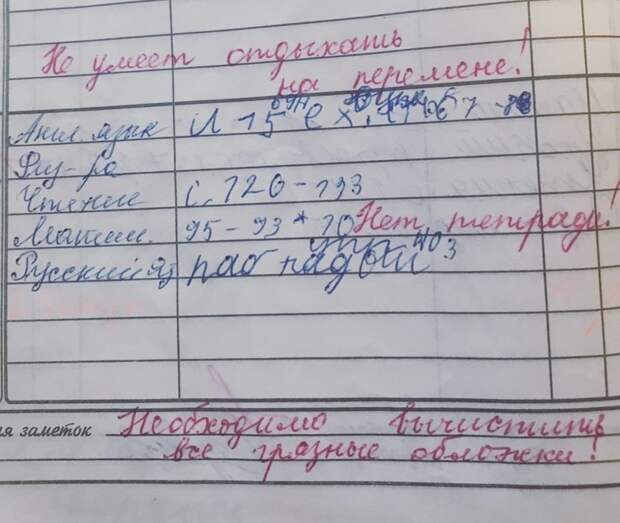 Не умеет отдыхать
на перемене!
Англ. язык
Физ-ра
Чтение с. 120-133
Матем. 95-93*70 Нет тетради!
Русский яз раб над ош
упр 403
ия заметок Необходимо вычистить
все грязные обложки!